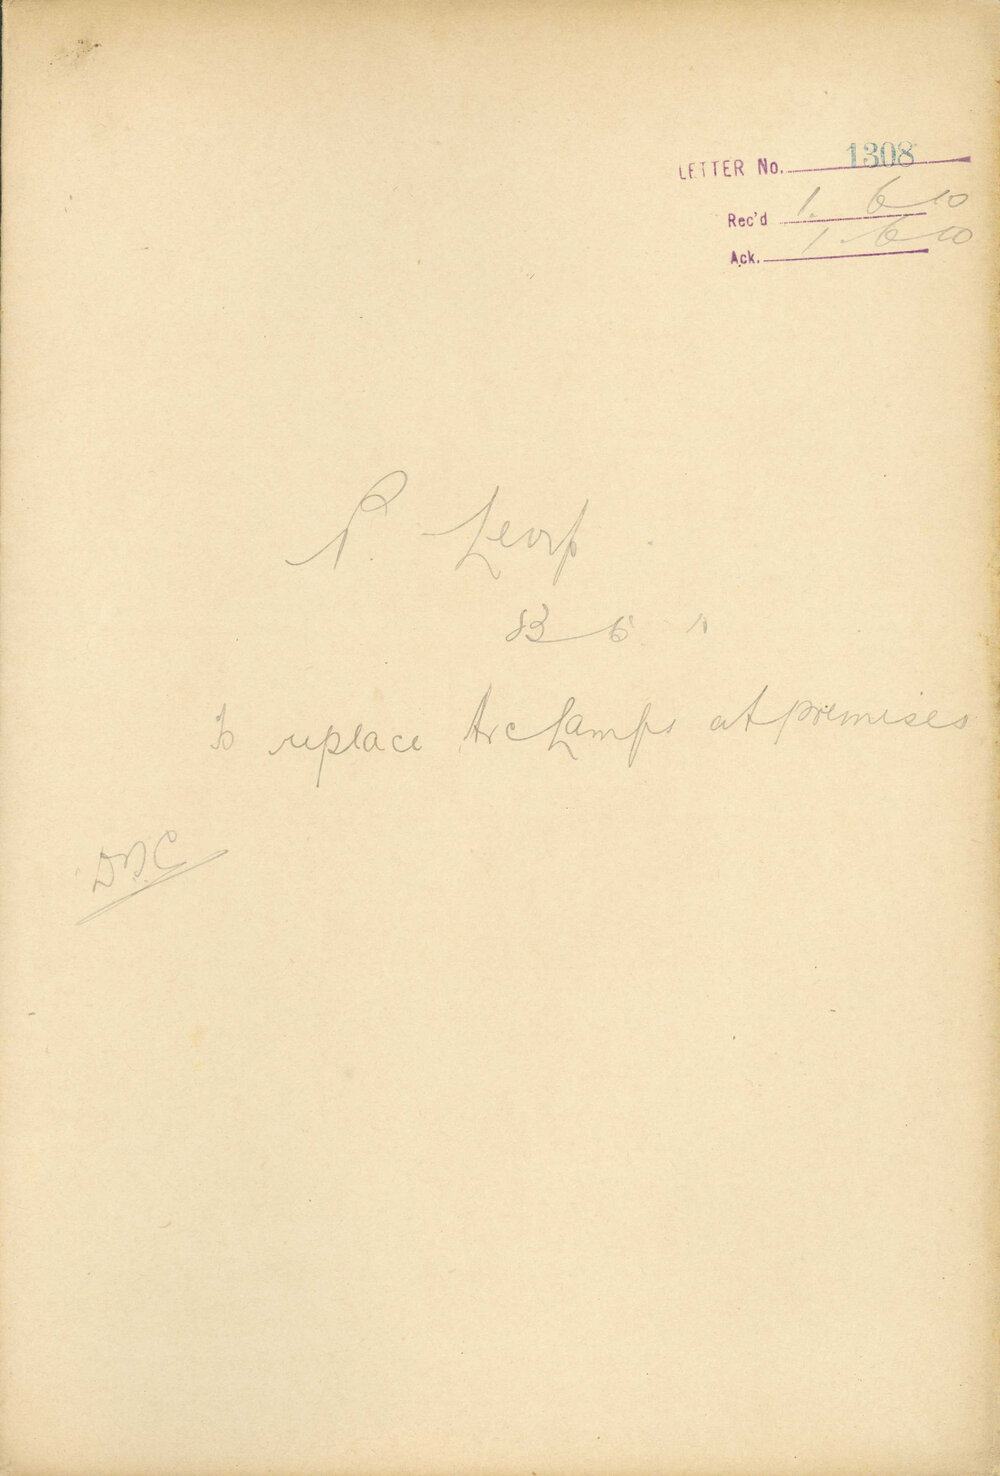 LETTER No. 1308
Rec'd 1. 6 10
Ack. 1. 6 10
P.
To replace Arc Lamps at premises